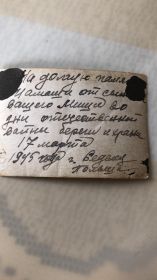 На долгую память
Мамаша от сына
вашего Миши во
дни отечественной
войны береги и храни
17 марта
1945 года г.
Польша